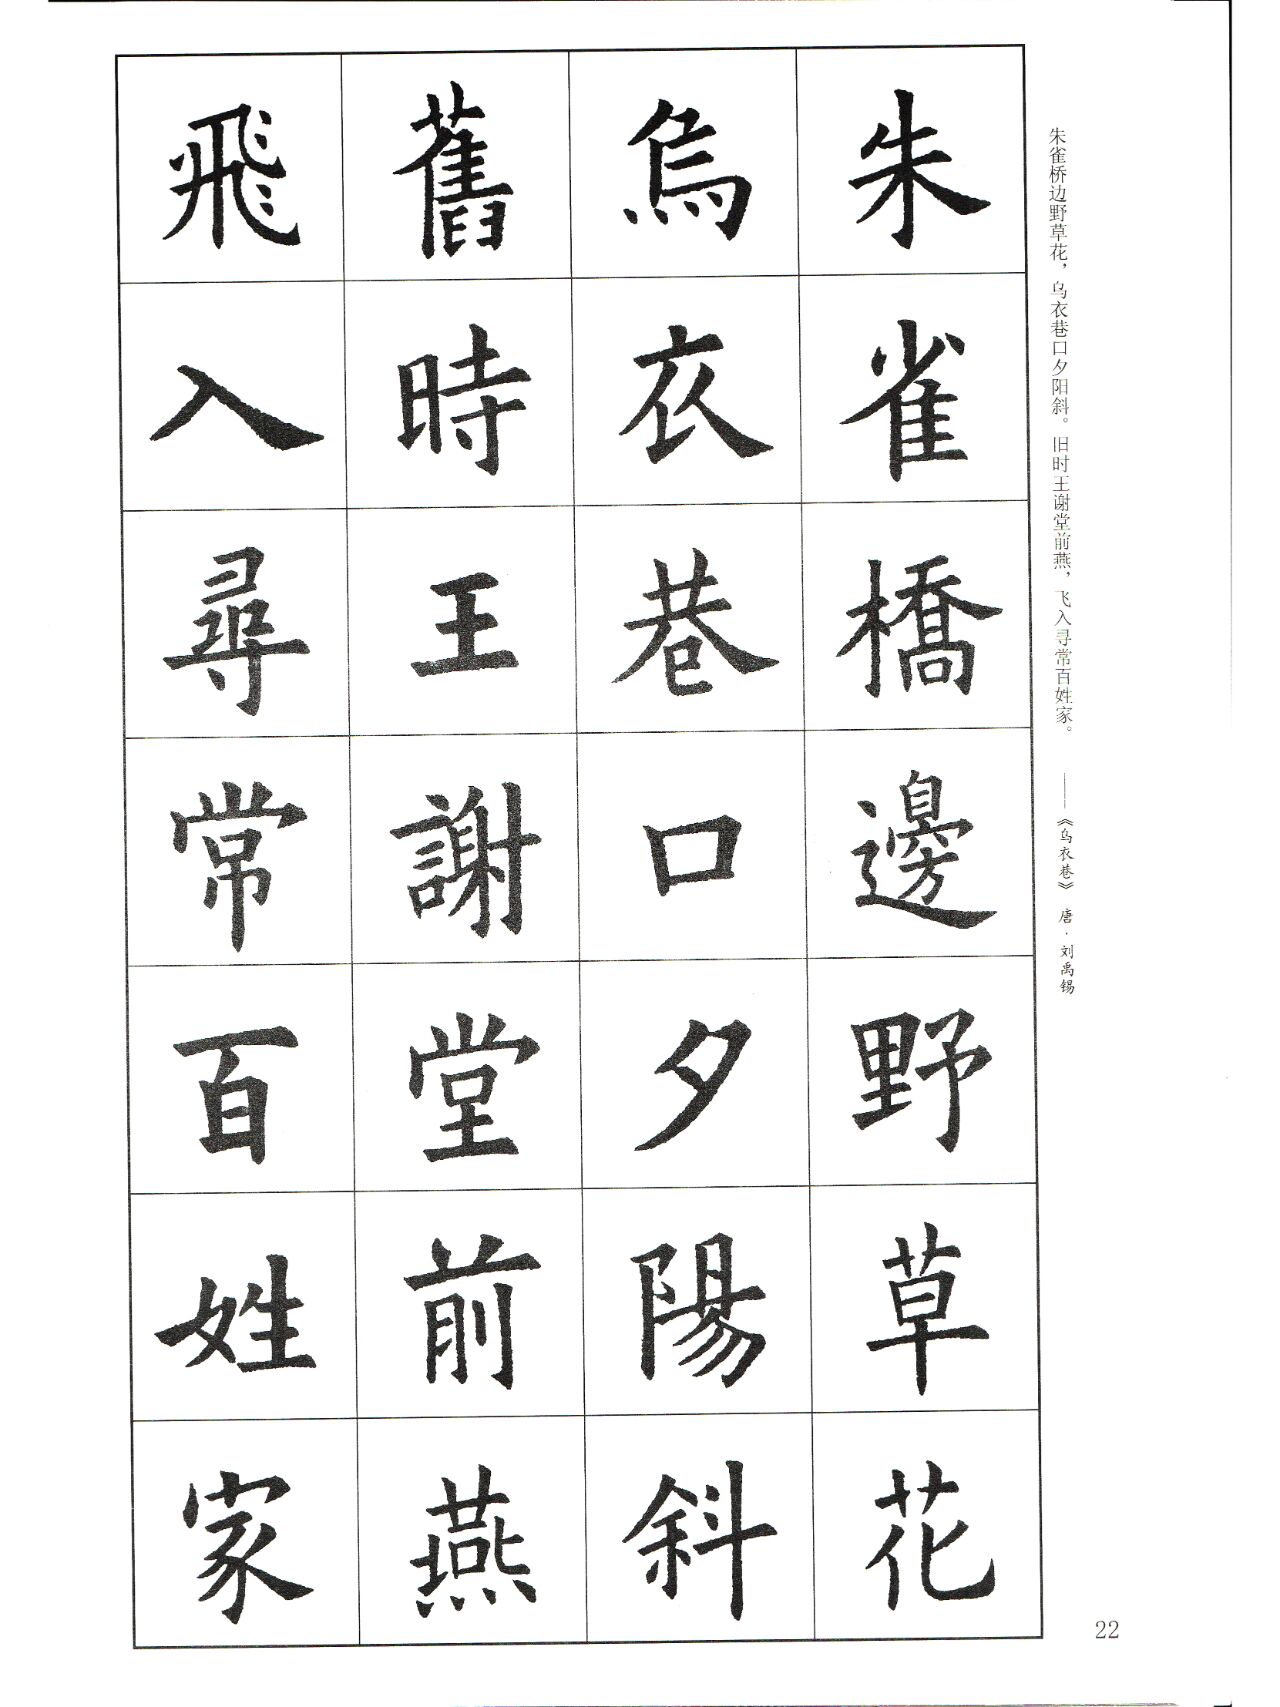 朱雀桥边野草花，乌衣巷口夕阳斜。旧时王谢堂前燕，飞入寻常百姓家。 ——《乌衣巷》 唐·刘禹锡
朱雀橋邊野草花
烏衣巷口夕陽斜
舊時王謝堂前燕
飛入尋常百姓家
22